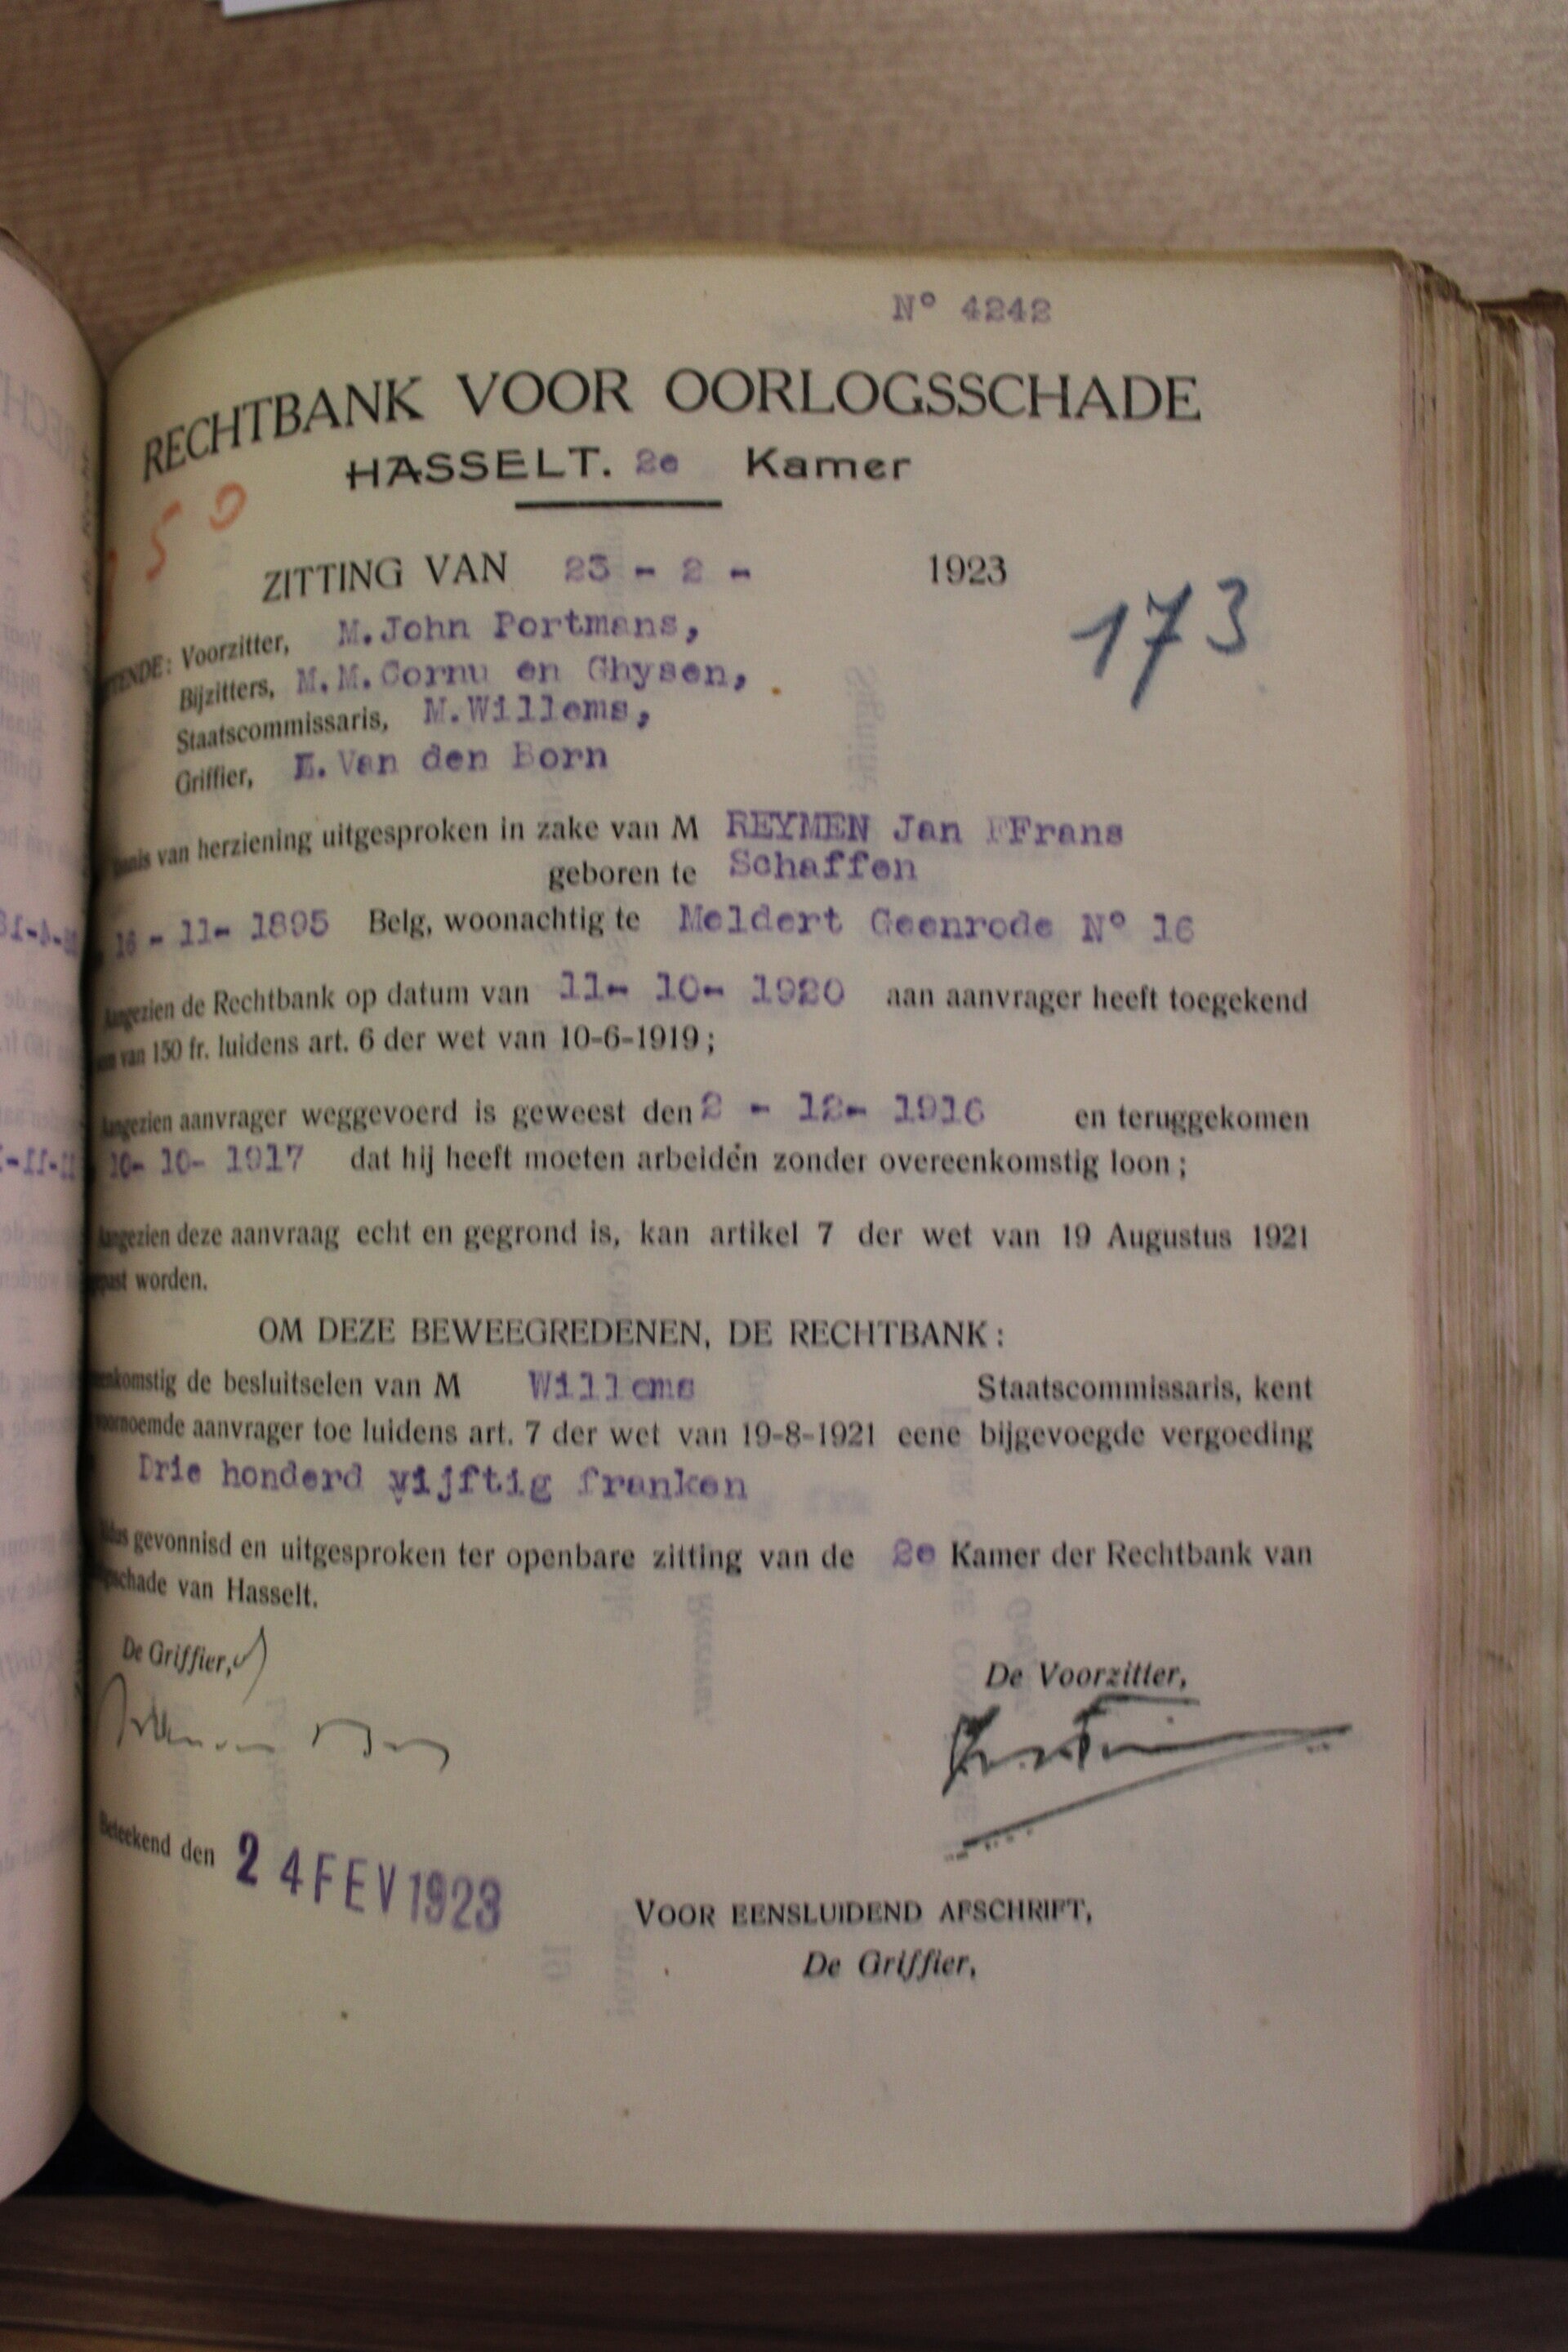 N° 4242
RECHTBANK VOOR OORLOGSSCHADE
HASSELT. 2e Kamer
50
ZITTING VAN 23 - 2 - 1923
173
TENDE: Voorzitter, M.John Portmans,
Bijzitters, M.M.Cornu en Ghysen,
Staatscommissaris, M.Willems,
Griffier, E.Van den Born
van herziening uitgesproken in zake van M REYMEN Jan FFrans
geboren te Schaffen
16 - 11- 1895 Belg, woonachtig te Meldert Geenrode N° 16
Aangezien de Rechtbank op datum van 11- 10- 1920 aan aanvrager heeft toegekend
van 150 fr. luidens art. 6 der wet van 10-6-1919;
Aangezien aanvrager weggevoerd is geweest den 2 - 12- 1916 en teruggekomen
10- 10- 1917 dat hij heeft moeten arbeidén zonder overeenkomstig loon;
Aangezien deze aanvraag echt en gegrond is, kan artikel 7 der wet van 19 Augustus 1921
worden.
OM DEZE BEWEEGREDENEN, DE RECHTBANK:
komstig de besluitselen van M Willems Staatscommissaris, kent
voornoemde aanvrager toe luidens art. 7 der wet van 19-8-1921 eene bijgevoegde vergoeding
Drie honderd vijftig franken
gevonnisd en uitgesproken ter openbare zitting van de 2e Kamer der Rechtbank van
schade van Hasselt.
De Griffier,
De Voorzitter,
Beteekend den 24 FEV 1923
VOOR EENSLUIDEND AFSCHRIFT,
De Griffier,